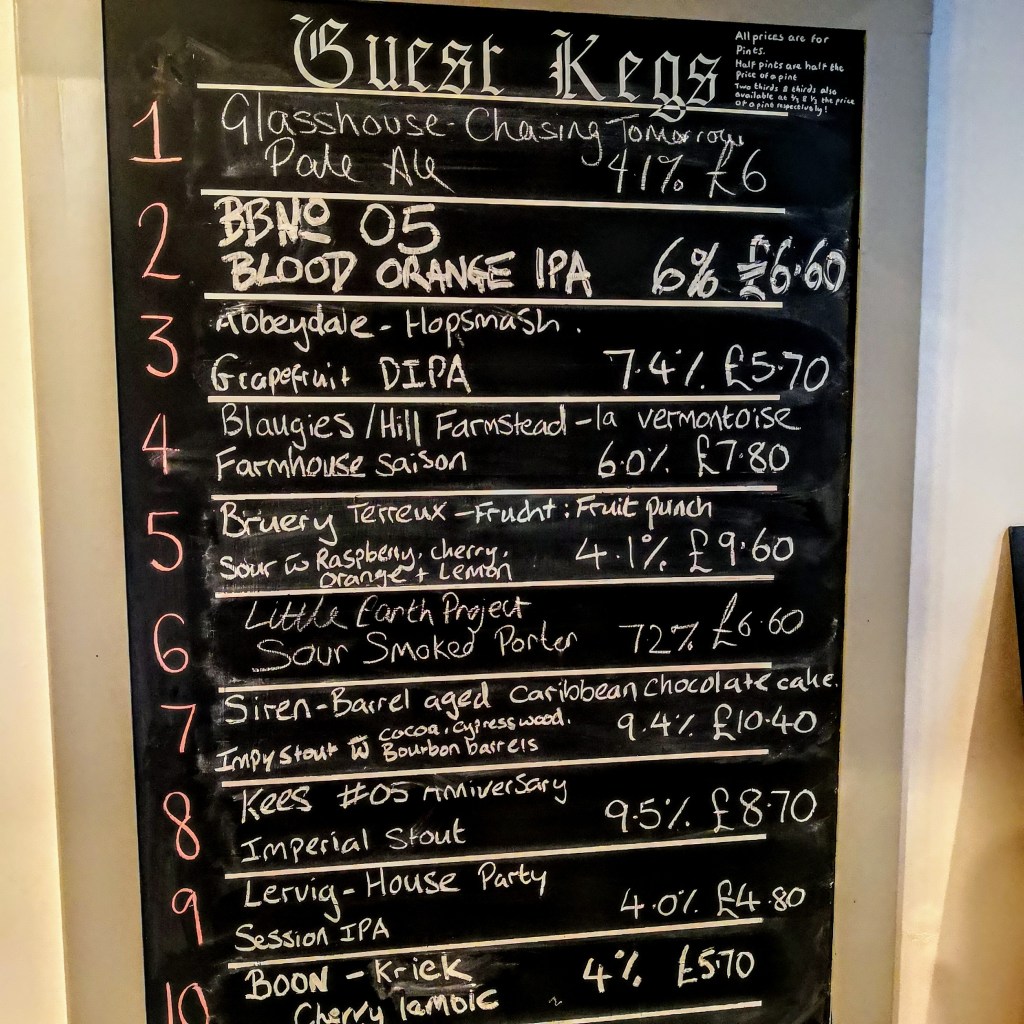 Guest Kegs
All prices are for
Pints.
Half pints are half the
price of a pint
Two thirds & thirds also
available at ⅔ & ⅓ the price
of a pint respectively!
1 Glasshouse - Chasing Tomorrow
Pale Ale 4.1% £6
2 BBNo 05
BLOOD ORANGE IPA 6% £6.60
3 Abbeydale - Hopsmash.
Grapefruit DIPA 7.4% £5.70
4 Blaugies / Hill Farmstead - la vermontoise
Farmhouse saison 6.0% £7.80
5 Bruery Terreux - Frucht: Fruit punch
Sour w Raspberry, cherry, 4.1% £9.60
orange + Lemon
6 Little Earth Project
Sour Smoked Porter 7.2% £6.60
7 Siren - Barrel aged caribbean chocolate cake.
cocoa, cypress wood. 9.4% £10.40
Impy stout w Bourbon barrels
8 Kees #05 Anniversary
Imperial Stout 9.5% £8.70
9 Lervig - House Party
Session IPA 4.0% £4.80
10 BOON - Kriek 4% £5.70
Cherry lambic